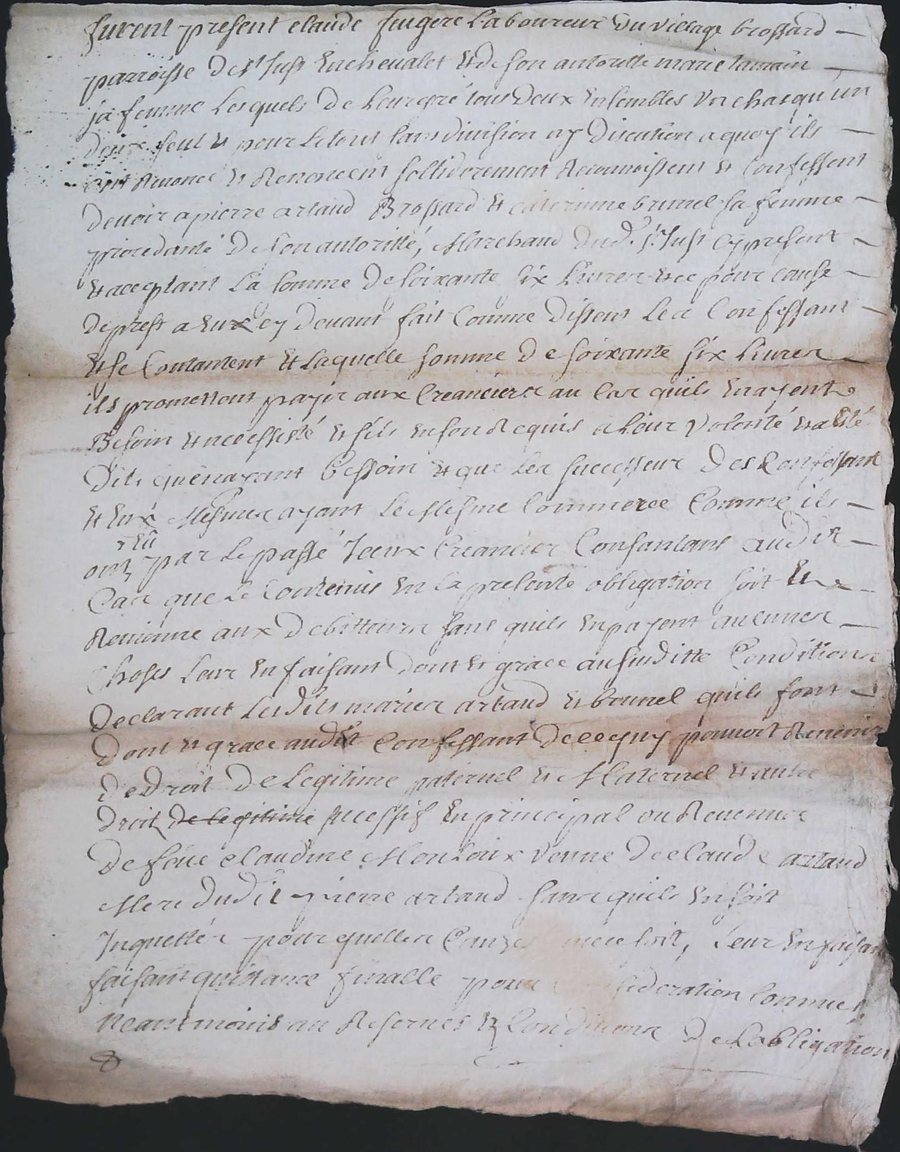 furent present claude fougere Laboureur du village brossard
parroisse de st Just En chevalet Et de son autoritte marie
sa femme Lesquels de Leur gré tous deux Ensembles Un chasqu'un
deux seul Et pour Le tout sans division ny Discution a quoy ils
ont Renoncé Et Renoncent sollidairement Reconnoissent Et Confessent
Devoir a pierre artaud Brossard Et caterinne brunel sa femme
procedante de son autoritté, Marchand dud. st Just cy present
Et acceptant La somme de soixante six Livres Et ce pour cause
de prest a Eux cy devant fait Comme dissent Les Confessant
Et se Contantent Et Laquelle somme de soixante six Livres
ils promettent payer aux Creanciers au Cas quils En ayent
Besoin Et necessité Et sils En son Requis a Leur volonté Et a Esté
Dit quen ayant Bessoin Et que Les successeur des Confessant
Et Eux Mesmes ayant Le Mesme Commerce Comme ils
ont Eu par Le passé Iceux Creancier Consantans audit
Cas que Le Contenus En La presente obligation soit Et
Remaine aux debitteurs sans quils En payent aucunes
choses Leur En faisant Dont Et grace aususditte Conditions
Declarant Lesdits mariés artaud Et brunel quils font
Dont Et grace audit Confessant de ce quy pouvoit Revenir
de droit de Legitime paternel Et Maternel Et autre
Droit de Legitime successif En principal ou Revenues
De feüe claudine Monloux veuve de claude artaud
Mere dudit pierre artaud sans quils En soit
Inquettés pour quelles Causes que ce soit, Leur En faisan
faisant quittance finalle pour Consideration Comme
Neantmoins au Reserves Et Conditions de Lobligation